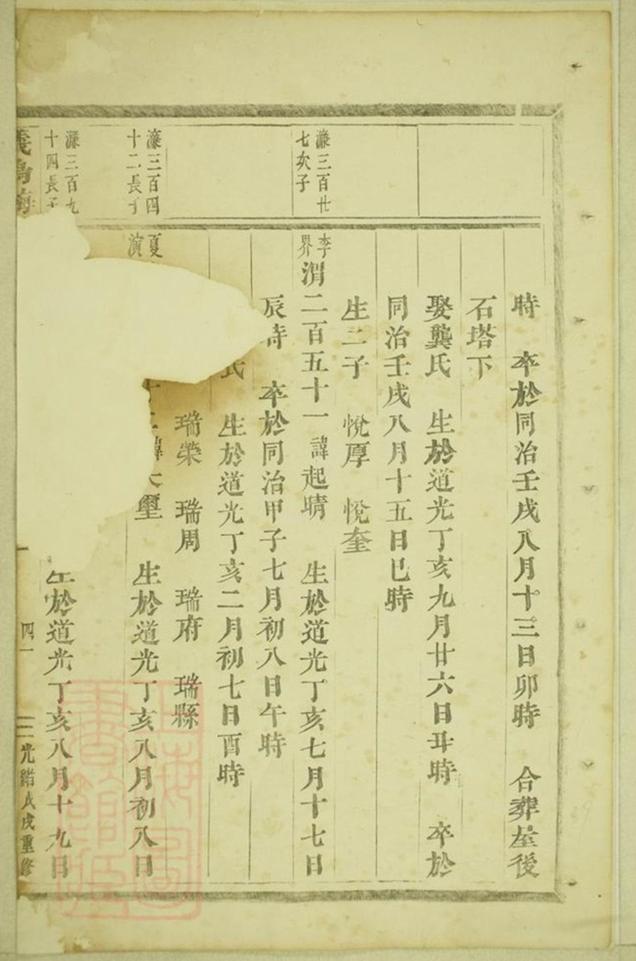 時　卒於同治壬戌八月十三日卯時　合葬屋後
石塔下
娶龔氏　生於道光丁亥九月廿六日丑時　卒於
同治壬戌八月十五日巳時
生二子　悅厚　悅奎
濂三百廿
七次子
李
界
渭二百五十一　諱起晴　生於道光丁亥七月十七日
辰時　卒於同治甲子七月初八日午時
氏　生於道光丁亥二月初七日酉時
瑞榮　瑞周　瑞府　瑞縣
濂三百四
十二長子
夏
演
十二諱大璽　生於道光丁亥八月初八日
濂三百九
十四長子
生於道光丁亥八月十九日
義烏
四一
光緒戊戌重修